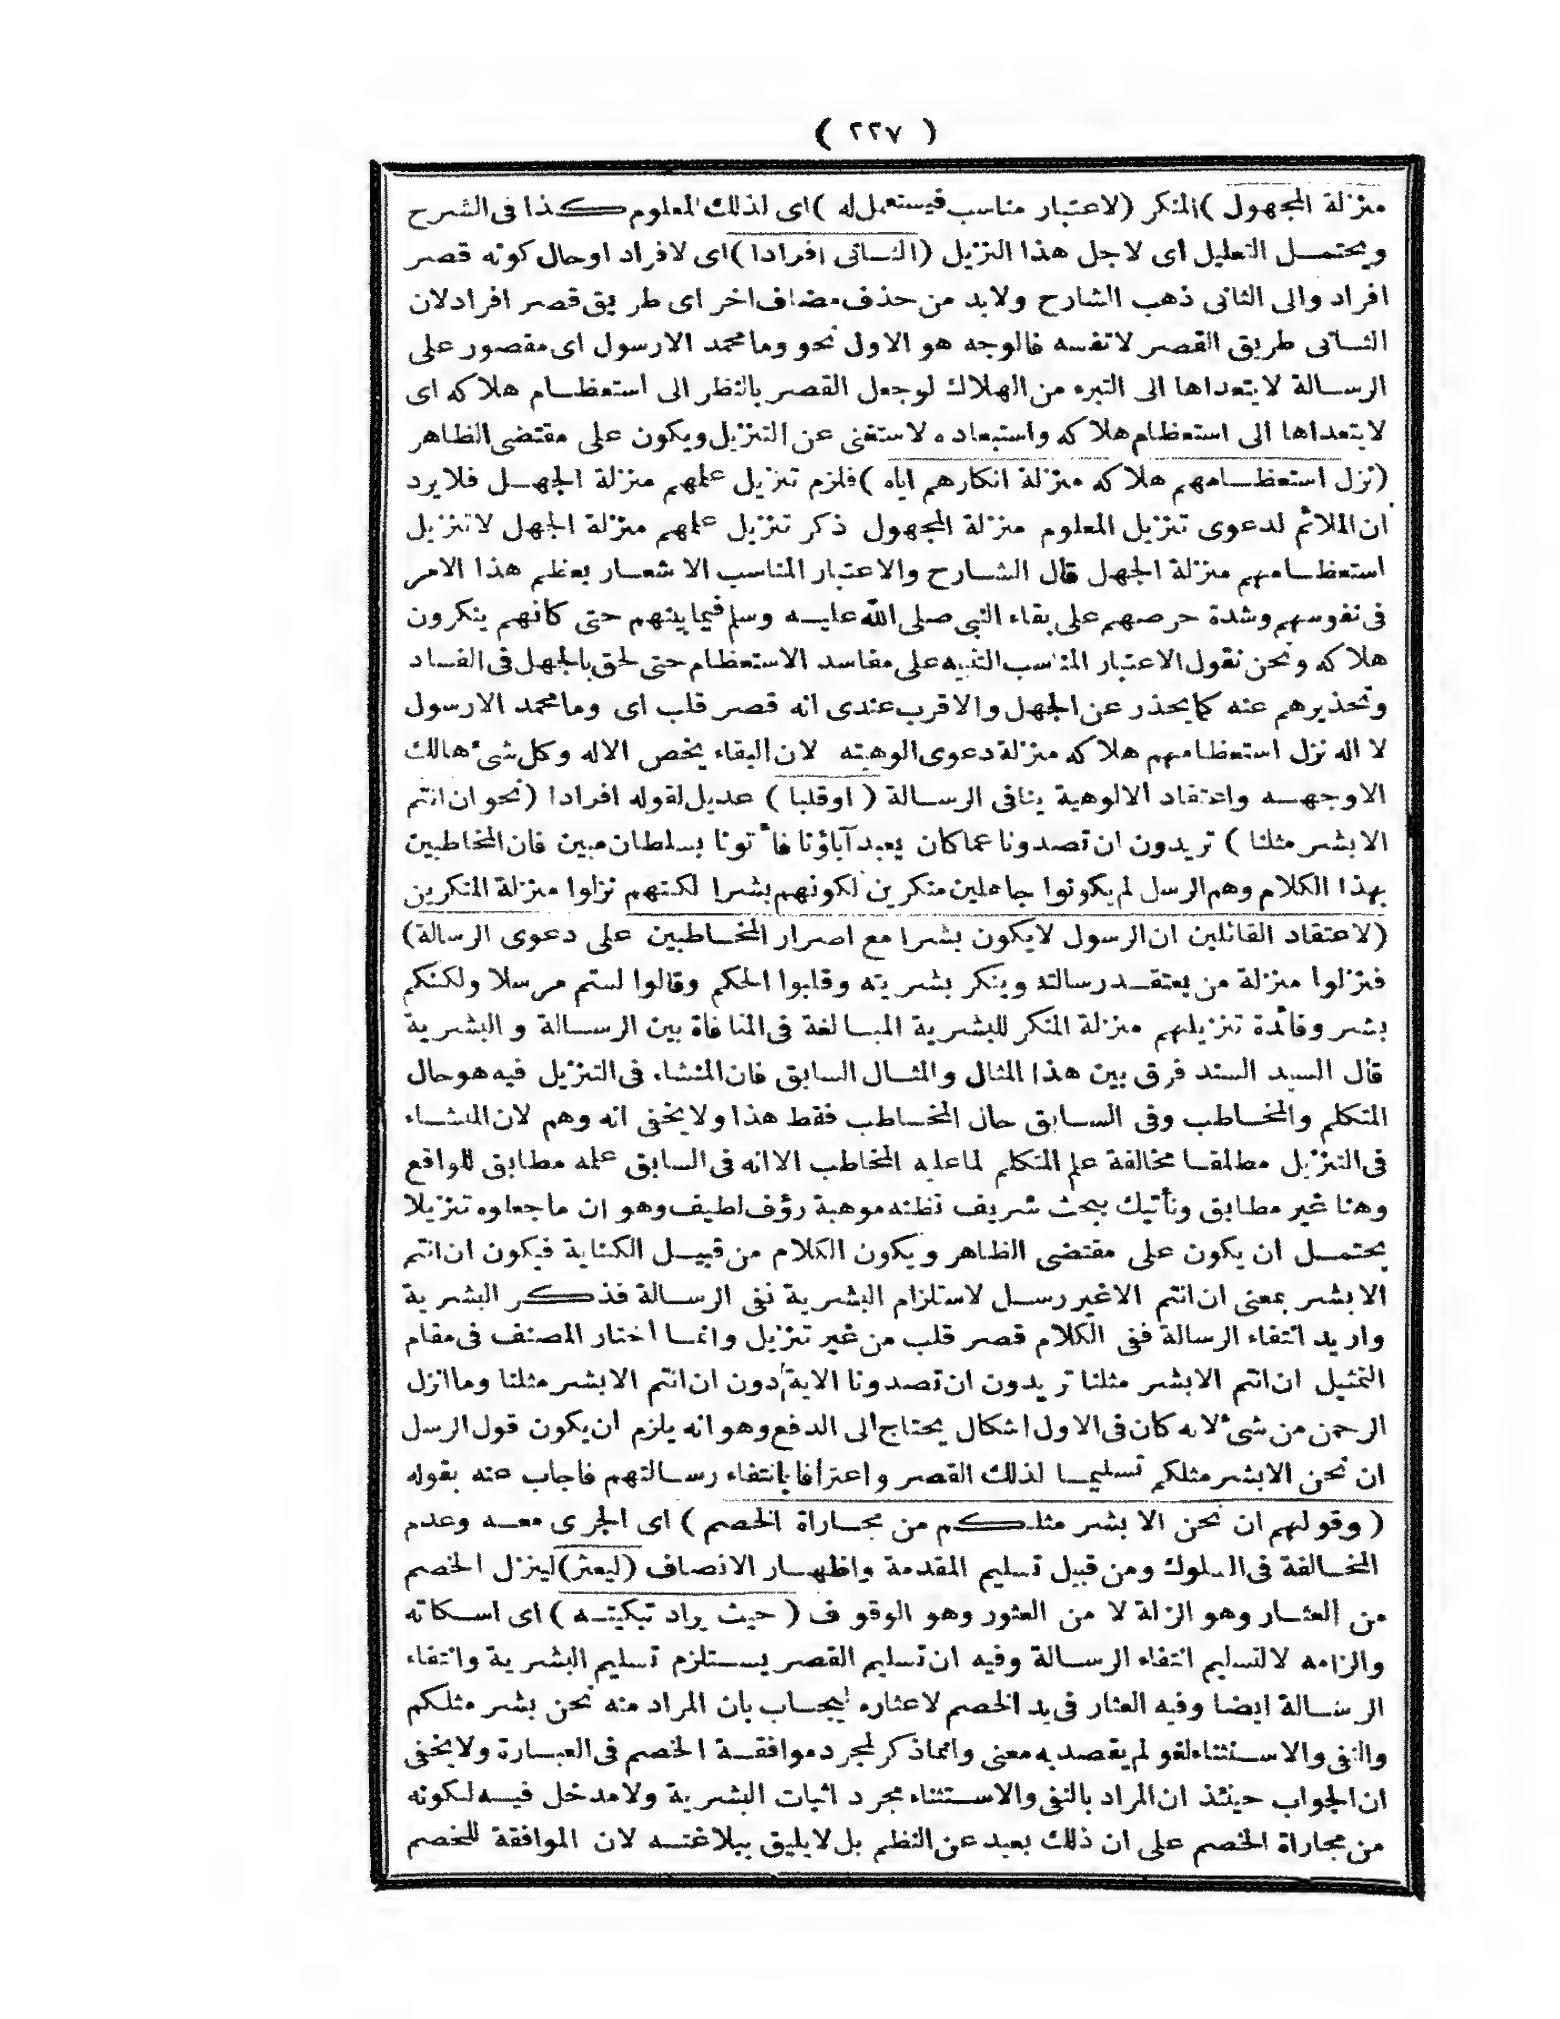 ( ٢٢٧ )
منزلة المجهول )المنكر (لاعتبار مناسب فيستعمل له )اى لذلك المعلوم كذا فى الشرح
ويحتمل التعليل اى لاجل هذا التنزيل (الثانى افرادا )اى لافراد اوحال كونه قصر
افراد والى الثانى ذهب الشارح ولابد من حذف مضاف اخر اى طريق قصر افراد لان
الثانى طريق القصر لانفسه فالوجه هو الاول نحو وما محمد الارسول اى مقصور على
الرسالة لايتعداها الى التبره من الهلاك لوجعل القصر بالنظر الى استعظام هلاكه اى
لايتعداها الى استعظام هلاكه واستبعاده لاستغنى عن التنزيل ويكون على مقتضى الظاهر
(نزل استعظامهم هلاكه منزلة انكارهم اياه )فلزم تنزيل علمهم منزلة الجهل فلايرد
ان الملائم لدعوى تنزيل المعلوم منزلة المجهول ذكر تنزيل علمهم منزلة الجهل لاتنزيل
استعظامهم منزلة الجهل قال الشارح والاعتبار المناسب الاشعار بعظم هذا الامر
فى نفوسهم وشدة حرصهم على بقاء النبى صلى الله عليه وسلم فيما بينهم حتى كانهم ينكرون
هلاكه ونحن نقول الاعتبار المناسب التنبيه على مفاسد الاستعظام حتى لحق بالجهل فى الفساد
وتحذيرهم عنه كما يحذر عن الجهل والاقرب عندى انه قصر قلب اى وما محمد الارسول
لا اله نزل استعظامهم هلاكه منزلة دعوى الوهيته لان البقاء يخص الاله وكل شىء هالك
الاوجهه واعتقاد الالوهية ينافى الرسالة ( اوقلبا ) عديل لقوله افرادا (نحو ان انتم
الابشر مثلنا ) تريدون ان تصدونا عما كان يعبد آباؤنا فأتونا بسلطان مبين فان المخاطبين
بهذا الكلام وهم الرسل لم يكونوا جاهلين منكرين لكونهم بشرا لكنهم نزلوا منزلة المنكرين
(لاعتقاد القائلين ان الرسول لايكون بشرا مع اصرار المخاطبين على دعوى الرسالة)
فنزلوا منزلة من يعتقد رسالته وينكر بشريته وقلبوا الحكم وقالوا لستم مرسلا ولكنكم
بشر وفائدة تنزيلهم منزلة المنكر للبشرية المبالغة فى المنافاة بين الرسالة والبشرية
قال السيد السند فرق بين هذا المثال والمثال السابق فان المنشاء فى التنزيل فيه هوحال
المتكلم والمخاطب وفى السابق حال المخاطب فقط هذا ولايخفى انه وهم لان المنشاء
فى التنزيل مطلقا مخالفة علم المتكلم لما عليه المخاطب الاانه فى السابق علمه مطابق للواقع
وهنا غير مطابق ونأتيك ببحث شريف نظنه موهبة رؤف لطيف وهو ان ماجعلوه تنزيلا
يحتمل ان يكون على مقتضى الظاهر ويكون الكلام من قبيل الكناية فيكون ان انتم
الابشر بمعنى ان انتم الاغير رسل لاستلزام البشرية نفى الرسالة فذكر البشرية
واريد انتفاء الرسالة ففى الكلام قصر قلب من غير تنزيل وانما اختار المصنف فى مقام
التمثيل ان انتم الابشر مثلنا تريدون ان تصدونا الاية دون ان انتم الابشر مثلنا وما انزل
الرحمن من شىء لانه كان فى الاول اشكال يحتاج الى الدفع وهو انه يلزم ان يكون قول الرسل
ان نحن الابشر مثلكم تسليما لذلك القصر واعترافا بانتفاء رسالتهم فاجاب عنه بقوله
( وقولهم ان نحن الابشر مثلكم من مجاراة الخصم ) اى الجرى معه وعدم
المخالفة فى السلوك ومن قبيل تسليم المقدمة واظهار الانصاف (ليعثر)لينزل الخصم
من العثار وهو الزلة لا من العثور وهو الوقوف ( حيث يراد تبكيته ) اى اسكاته
والزامه لالتسليم انتفاء الرسالة وفيه ان تسليم القصر يستلزم تسليم البشرية وانتفاء
الرسالة ايضا وفيه العثار فى يد الخصم لاعثاره ليجاب بان المراد منه نحن بشر مثلكم
والنفى والاستثناء لغو لم يقصد به معنى وانما ذكر لمجرد موافقة الخصم فى العبارة ولايخفى
ان الجواب حينئذ ان المراد بالنفى والاستثناء مجرد اثبات البشرية ولامدخل فيه لكونه
من مجاراة الخصم على ان ذلك بعيد عن النظم بل لايليق ببلاغته لان الموافقة للخصم